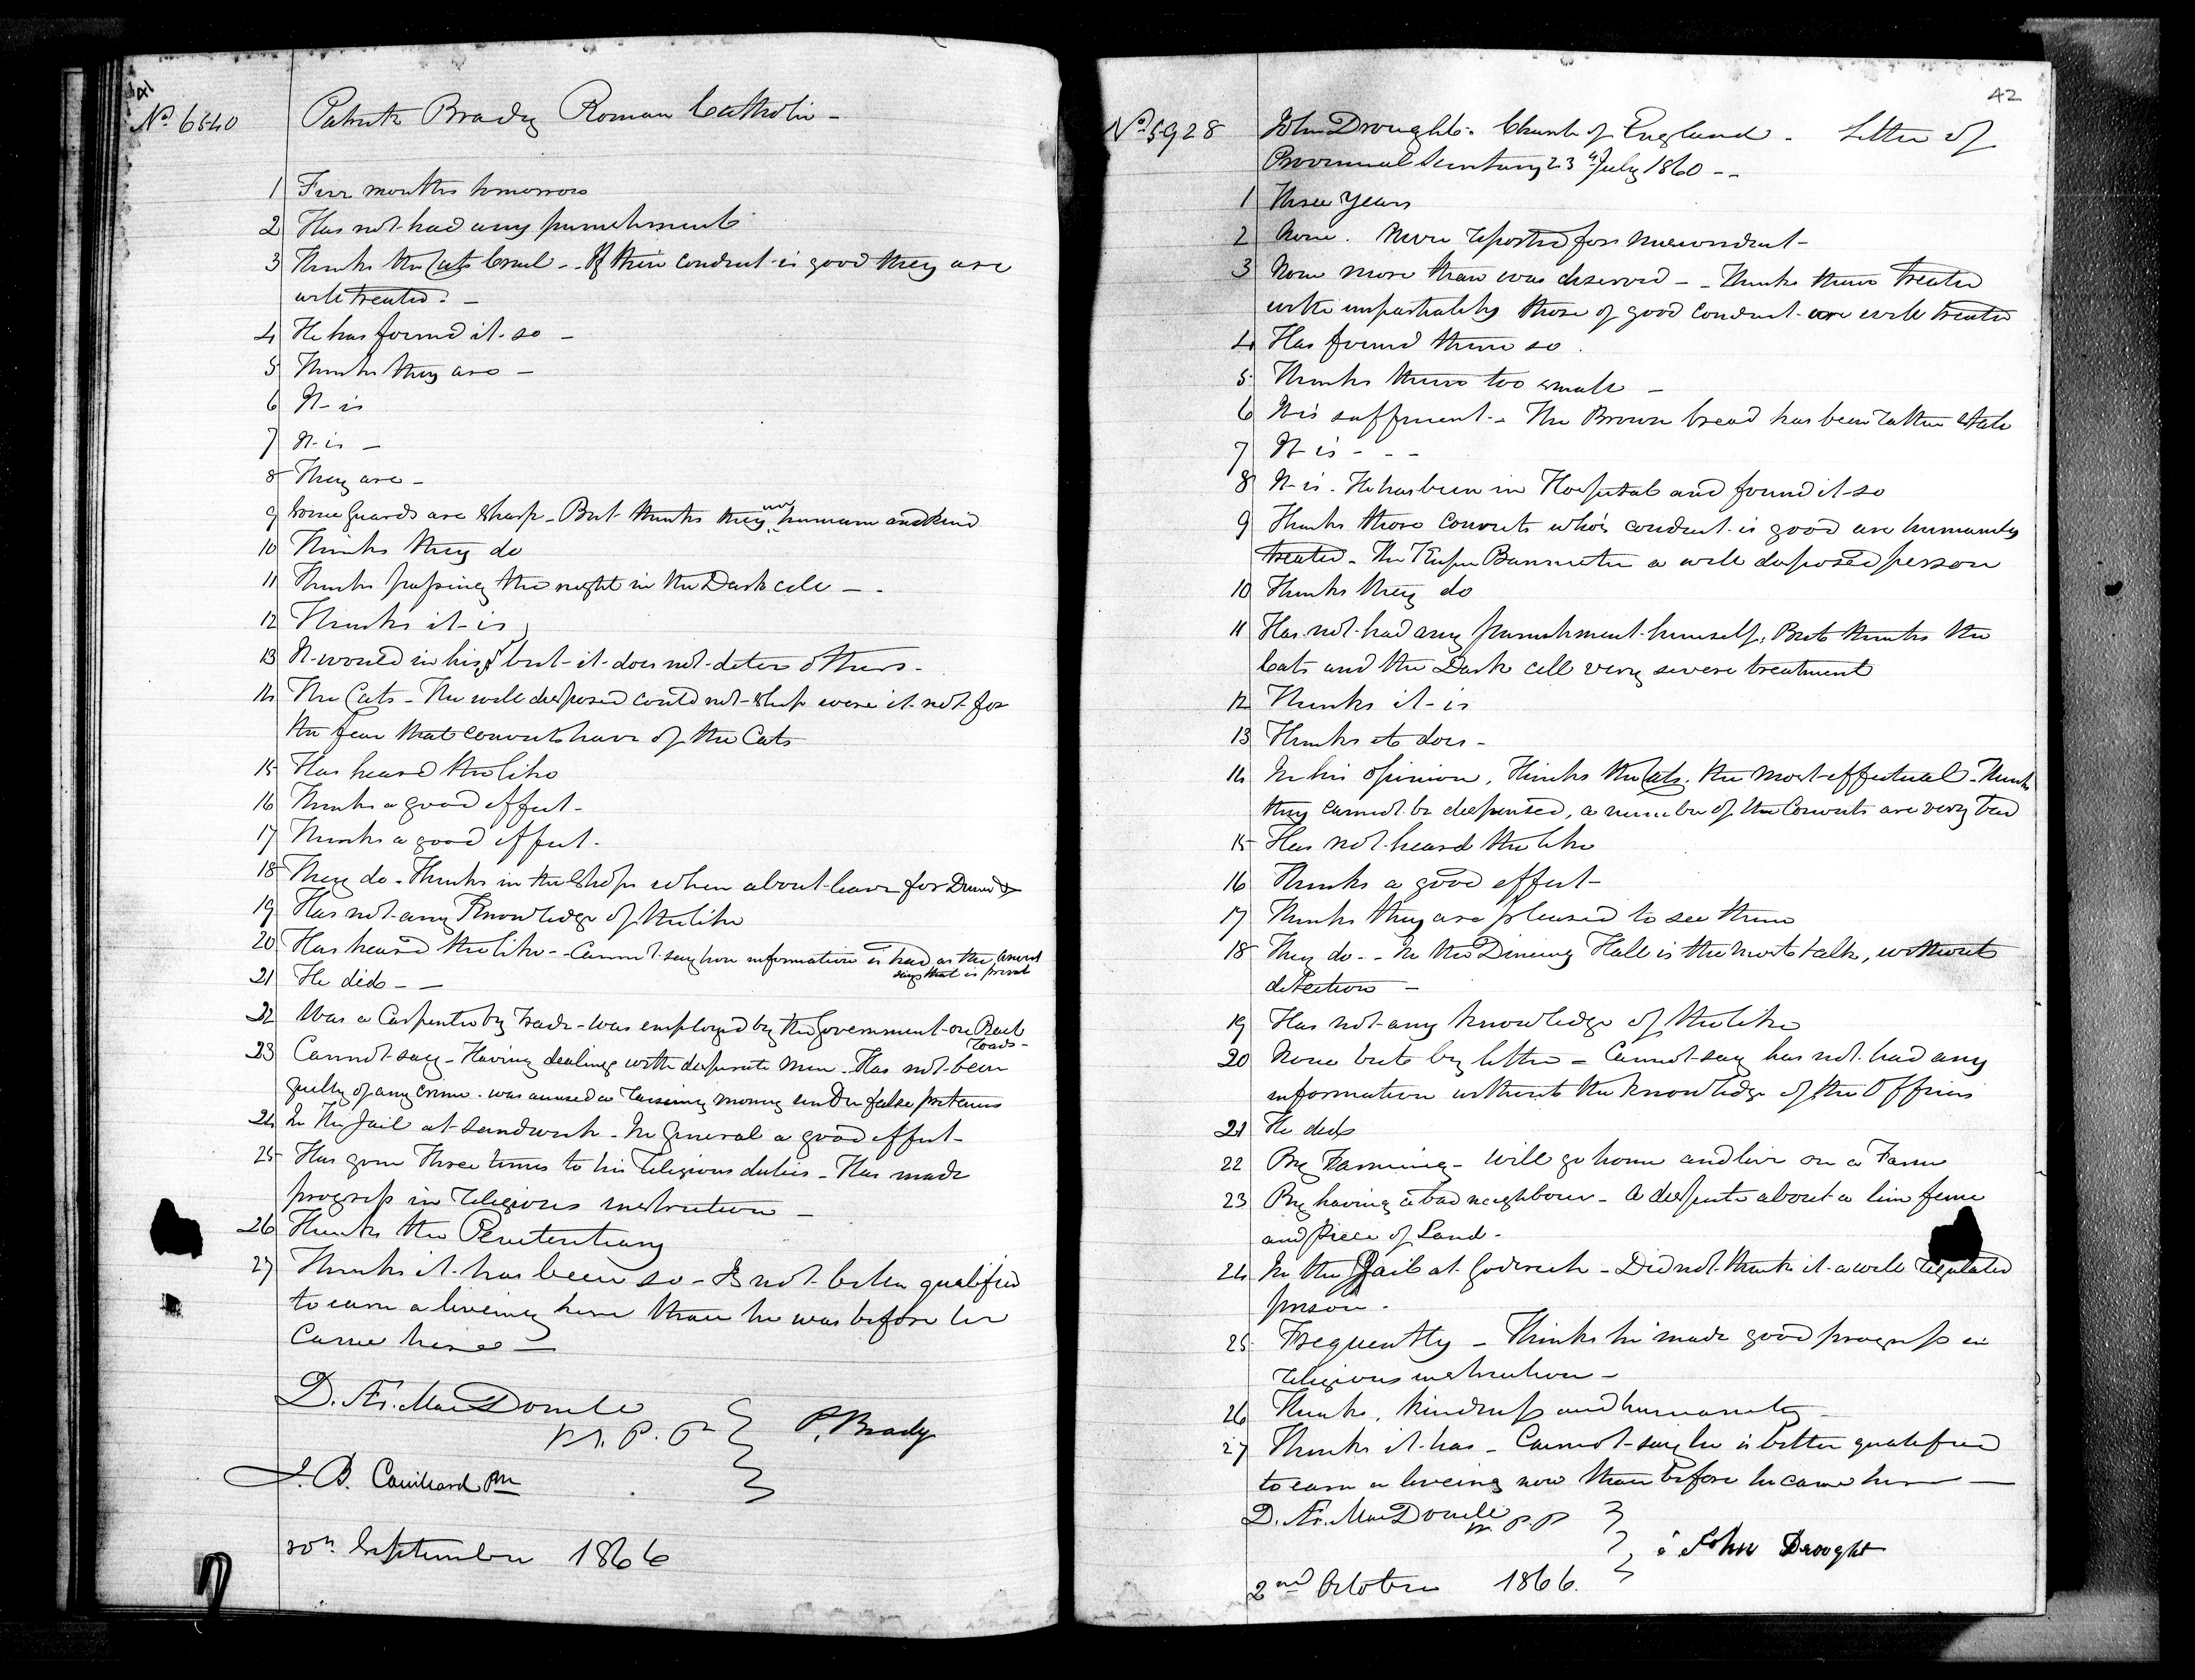 41
No 6540 Patrick Brady Roman Catholic -
1 Five months tomorrow
2 Has not had any punishment
3 Thinks the Cats Cruel - - If their conduct is good they are
well treated. -
4 He has found it so -
5 Thinks they are -
6 It is
7 It is -
8 They are -
9 Some guards are sharp - But thinks they are humane and kind
10 Thinks they do
11 Thinks passing the night in the Dark cell - -
12 Thinks it is
13 It would in his, but it does not deter others -
14 The Cats - The well disposed could not sleep were it not for
the fear that convicts have of the Cats
15 Has heard the like
16 Thinks a good effect -
17 Thinks a good effect -
18 They do - Thinks in the Shops when about leave for Dinner
19 Has not any Knowledge of the like
20 Has heard the like - Cannot say how information is had as the convict
says that is private
21 He did - -
22 Was a Carpenter by trade - was employed by the Government on
Roads -
23 Cannot say - Having dealings with desperate men - Has not been
guilty of any crime - was accused of raising money under false pretences
24 In the Jail at Sandwich - In general a good effect -
25 Has gone Three times to his religious duties - Has made
progress in religious instruction -
26 Thinks the Penitentiary
27 Thinks it has been so - Is not better qualified
to earn a liveing here than he was before he
came here -
D. Æ. MacDonell
W. P. P. P. Brady
J. B.
30th September 1866
42
No 5928 John Drought - Church of England - Letter of
Provincial Secretary 23rd July 1860 - -
1 Three Years
2 None. Never reported for misconduct -
3 None more than was deserved - - Thinks them treated
with impartiality those of good conduct are well treated
4 Has found them so.
5 Thinks them too small -
6 It is sufficient - The Brown bread has been rather stale
7 It is - - -
8 It is. He has been in Hospital and found it so
9 Thinks those Convicts who's conduct is good are humanely
treated - The Keeper Bannister a well disposed person
10 Thinks they do
11 Has not had any punishment himself, But thinks the
Cats and the Dark cell very severe treatment
12 Thinks it is
13 Thinks it does -
14 In his opinion, Thinks the Cats the most effectual - Thinks
they cannot be dispensed, a number of the Convicts are very bad
15 Has not heard the like
16 Thinks a good effect -
17 Thinks they are pleased to see them
18 They do - - In the Dining Hall is the most talk, without
detection -
19 Has not any knowledge of the like
20 None but by letter - Cannot say has not had any
information without the knowledge of the Officers
21 He did
22 By Farming - Will go home and live on a Farm
23 By having a bad neighbour - A dispute about a line fence
and piece of Land -
24 In the Jail at Goderich - Did not think it a well regulated
prison -
25 Frequently - Thinks he made good progress in
religious instruction -
26 Thinks, kindness and humanity -
27 Thinks it has - Cannot say he is better qualified
to earn a liveing now than before he came here -
D. Æ. MacDonell
W. P. P. John Drought
2nd October 1866.